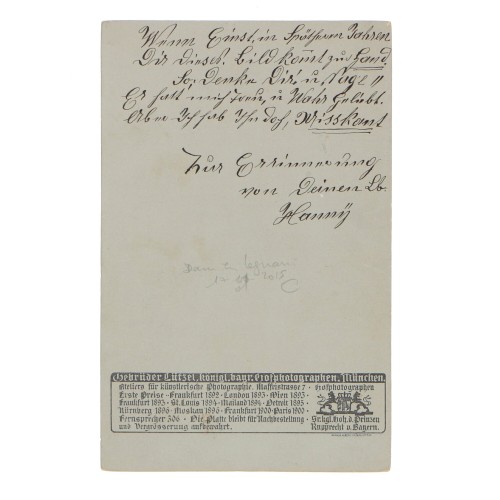 Wenn Einst, in Späthern Jahren
Dir Dieses, Bild komt zur Hand,
So, Denke Dir, u, Sage "
Er hatt mich Treu, u Wahr Geliebt.
Aber Ich hab Ihn doch, Misskannt
Zur Errinnerung
von Deinen Lb.
Hanny
2015
Gebrüder Lützel, königl. bayr. Hofphotographen, München.
Ateliers für künstlerische Photographie. Maffeistrasse 7 · Hofphotographen
Erste Preise · Frankfurt 1892 · London 1893 · Wien 1893 ·
Frankfurt 1893 · St. Louis 1894 · Mailand 1894 · Detroit 1895 ·
Nürnberg 1896 · Moskau 1896 · Frankfurt 1900 · Paris 1900 ·
Fernsprecher 306 · Die Platte bleibt für Nachbestellung
und Vergrösserung aufbewahrt.
Sr. kgl. Hoh. d. Prinzen
Rupprecht v. Bayern.